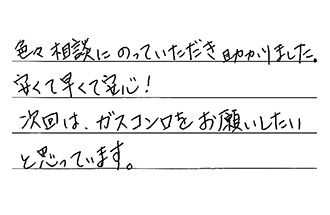 色々相談にのっていただき助かりました。
安くて早くて安心！
次回は、ガスコンロをお願いしたい
と思っています。